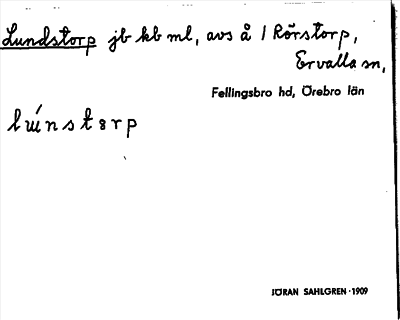 Lundstorp jb kb ml, avs å 1 Rörstorp,
Ervalla sn,
Fellingsbro hd, Örebro län
JÖRAN SAHLGREN · 1909